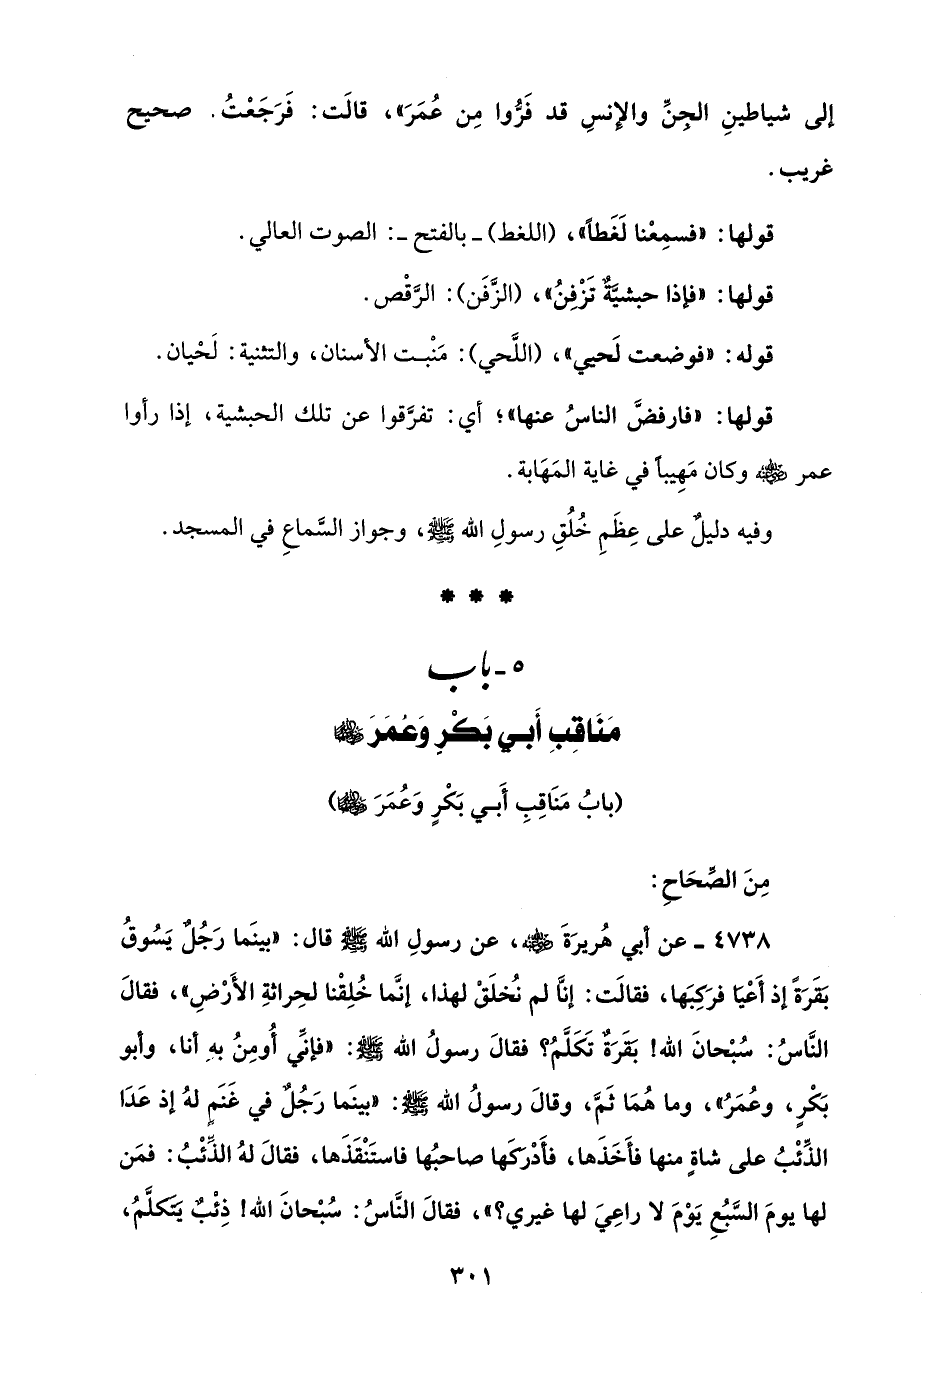 إلى شياطينِ الجِنِّ والإنسِ قد فَرُّوا مِن عُمَرَ»، قالَت: فَرَجَعْتُ. صحيح
غريب.
قولها: «فسمِعْنا لَغَطاً»، (اللغط) ـ بالفتح ـ: الصوت العالي.
قولها: «فإذا حبشيَّةٌ تَزْفِنُ»، (الزَّفَن): الرَّقْص.
قوله: «فوضعت لَحيي»، (اللَّحي): مَنْبت الأسنان، والتثنية: لَحْيان.
قولها: «فارفضَّ الناسُ عنها»؛ أي: تفرَّقوا عن تلك الحبشية، إذا رأوا
عمر ﷺ وكان مَهِيباً في غاية المَهَابة.
وفيه دليلٌ على عِظَمِ خُلُقِ رسولِ الله ﷺ، وجواز السَّماعِ في المسجد.
* * *
٥ ـ باب
مَنَاقِبِ أَبي بَكْرٍ وَعُمَرَ رضي الله عنهما
(بابُ مَنَاقِبِ أَبي بَكْرٍ وَعُمَرَ رضي الله عنهما)
مِنَ الصِّحَاحِ:
٤٧٣٨ ـ عن أبي هُريرَةَ رضي الله عنه، عن رسولِ الله ﷺ قال: «بينَما رَجُلٌ يَسُوقُ
بَقَرَةً إذ أَعْيَا فرَكِبَها، فقالَت: إنَّا لم نُخلَقْ لهذا، إنَّما خُلِقْنا لحِراثةِ الأَرْضِ»، فقالَ
النَّاسُ: سُبْحانَ الله! بَقَرَةٌ تَكَلَّمُ؟ فقالَ رسولُ الله ﷺ: «فإنِّي أُومِنُ بهِ أنا، وأبو
بَكْرٍ، وعُمَرُ»، وما هُمَا ثَمَّ، وقالَ رسولُ الله ﷺ: «بينَما رَجُلٌ في غَنَمٍ لهُ إذ عَدَا
الذِّئْبُ على شاةٍ منها فأَخَذَها، فأَدْرَكَها صاحبُها فاستَنْقَذَها، فقالَ لهُ الذِّئْبُ: فمَن
لها يومَ السَّبُعِ يَوْمَ لا راعِيَ لها غيري؟»، فقالَ النَّاسُ: سُبْحانَ الله! ذِئْبٌ يَتَكلَّمُ،
٣٠١